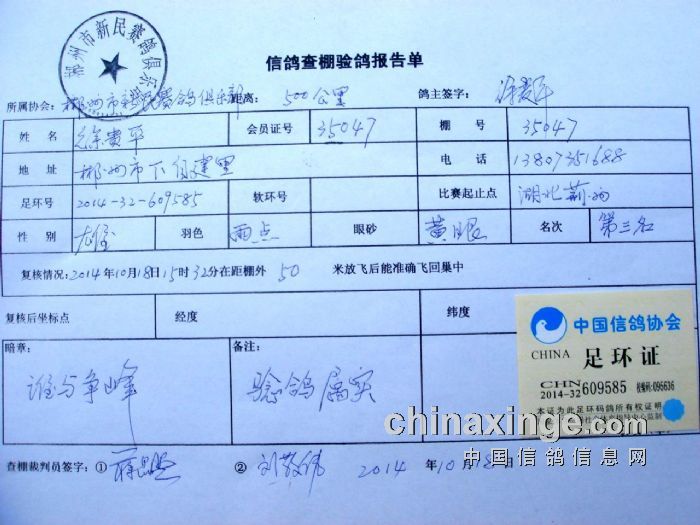 郴州市新民赛鸽俱乐部
信鸽查棚验鸽报告单
所属协会：郴州市新民赛鸽俱乐部 距离：500公里 鸽主签字：
姓名 徐贵平 会员证号 35047 棚号 35047
地址 郴州市下 电话 13807351688
足环号 2014-32-609585 软环号 比赛起止点 湖北荆州
性别 雄 羽色 雨点 眼砂 黄眼 名次 第三名
复核情况：2014年10月18日15时32分在距棚外 50 米放飞后能准确飞回巢中
复核后坐标点 经度 纬度
暗章： 备注：
谁与争峰 验鸽属实
中国信鸽协会
CHINA 足环证
CHN
2014-32 609585 096636
本证为此足环码鸽所有权证明
chinaxinge.com
中国信鸽信息网
查棚裁判员签字：① ② 刘敬伟 2014 年10月18日